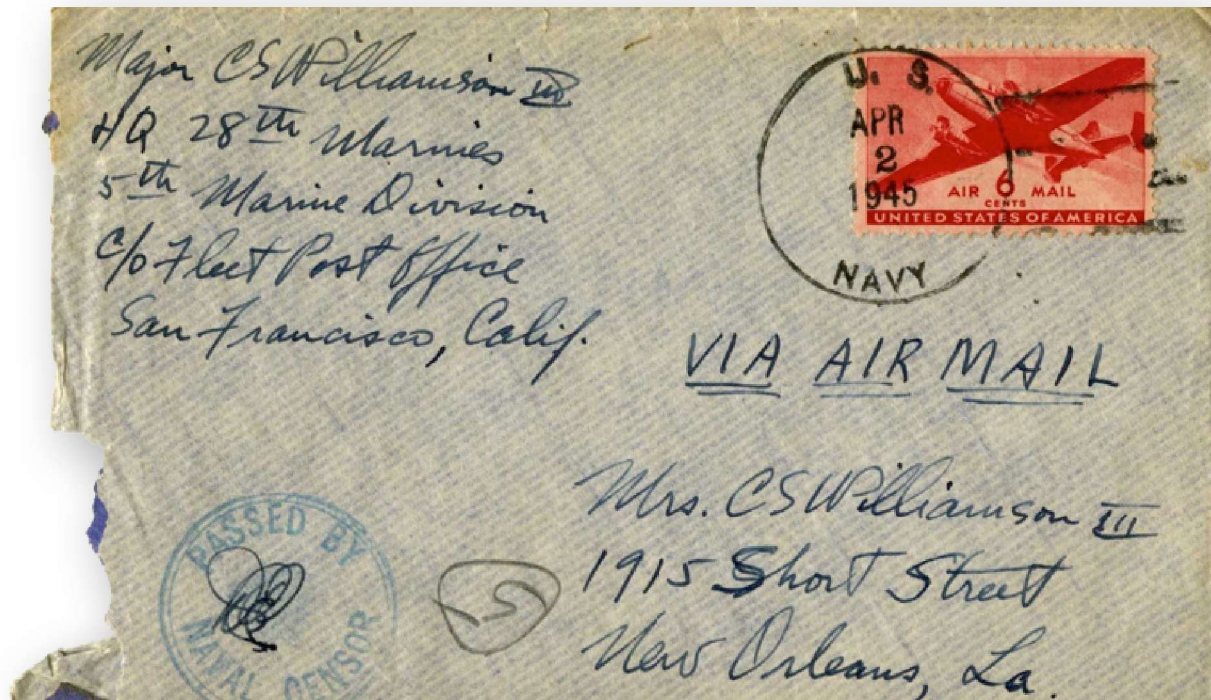 Major CSWilliamson III
HQ 28th Marines
5th Marine Division
c/o Fleet Post Office
San Francisco, Calif.
U. S.
APR
2
1945
NAVY
AIR 6 MAIL
CENTS
UNITED STATES OF AMERICA
VIA AIR MAIL
Mrs. CSWilliamson III
1915 Short Street
New Orleans, La.
PASSED BY
NAVAL CENSOR
S